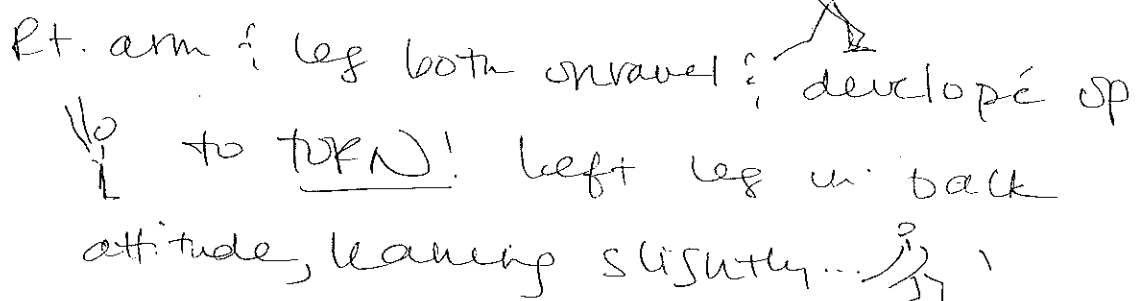 Rt. arm & leg both unravel & developé up
to TURN! Left leg in back
attitude, leaning slightly...